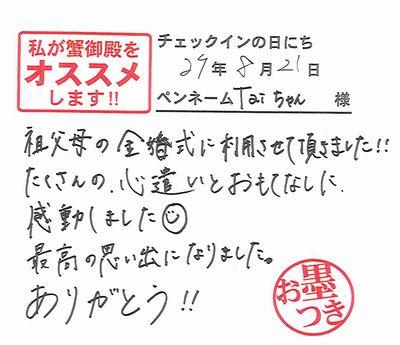 私が蟹御殿を
オススメ
します!!
チェックインの日にち
29年8月21日
ペンネーム Tai ちゃん 様
祖父母の金婚式に利用させて頂きました!!
たくさんの、心遣いとおもてなしに、
感動しました☺
最高の思い出になりました。
ありがとう!!
お墨つき